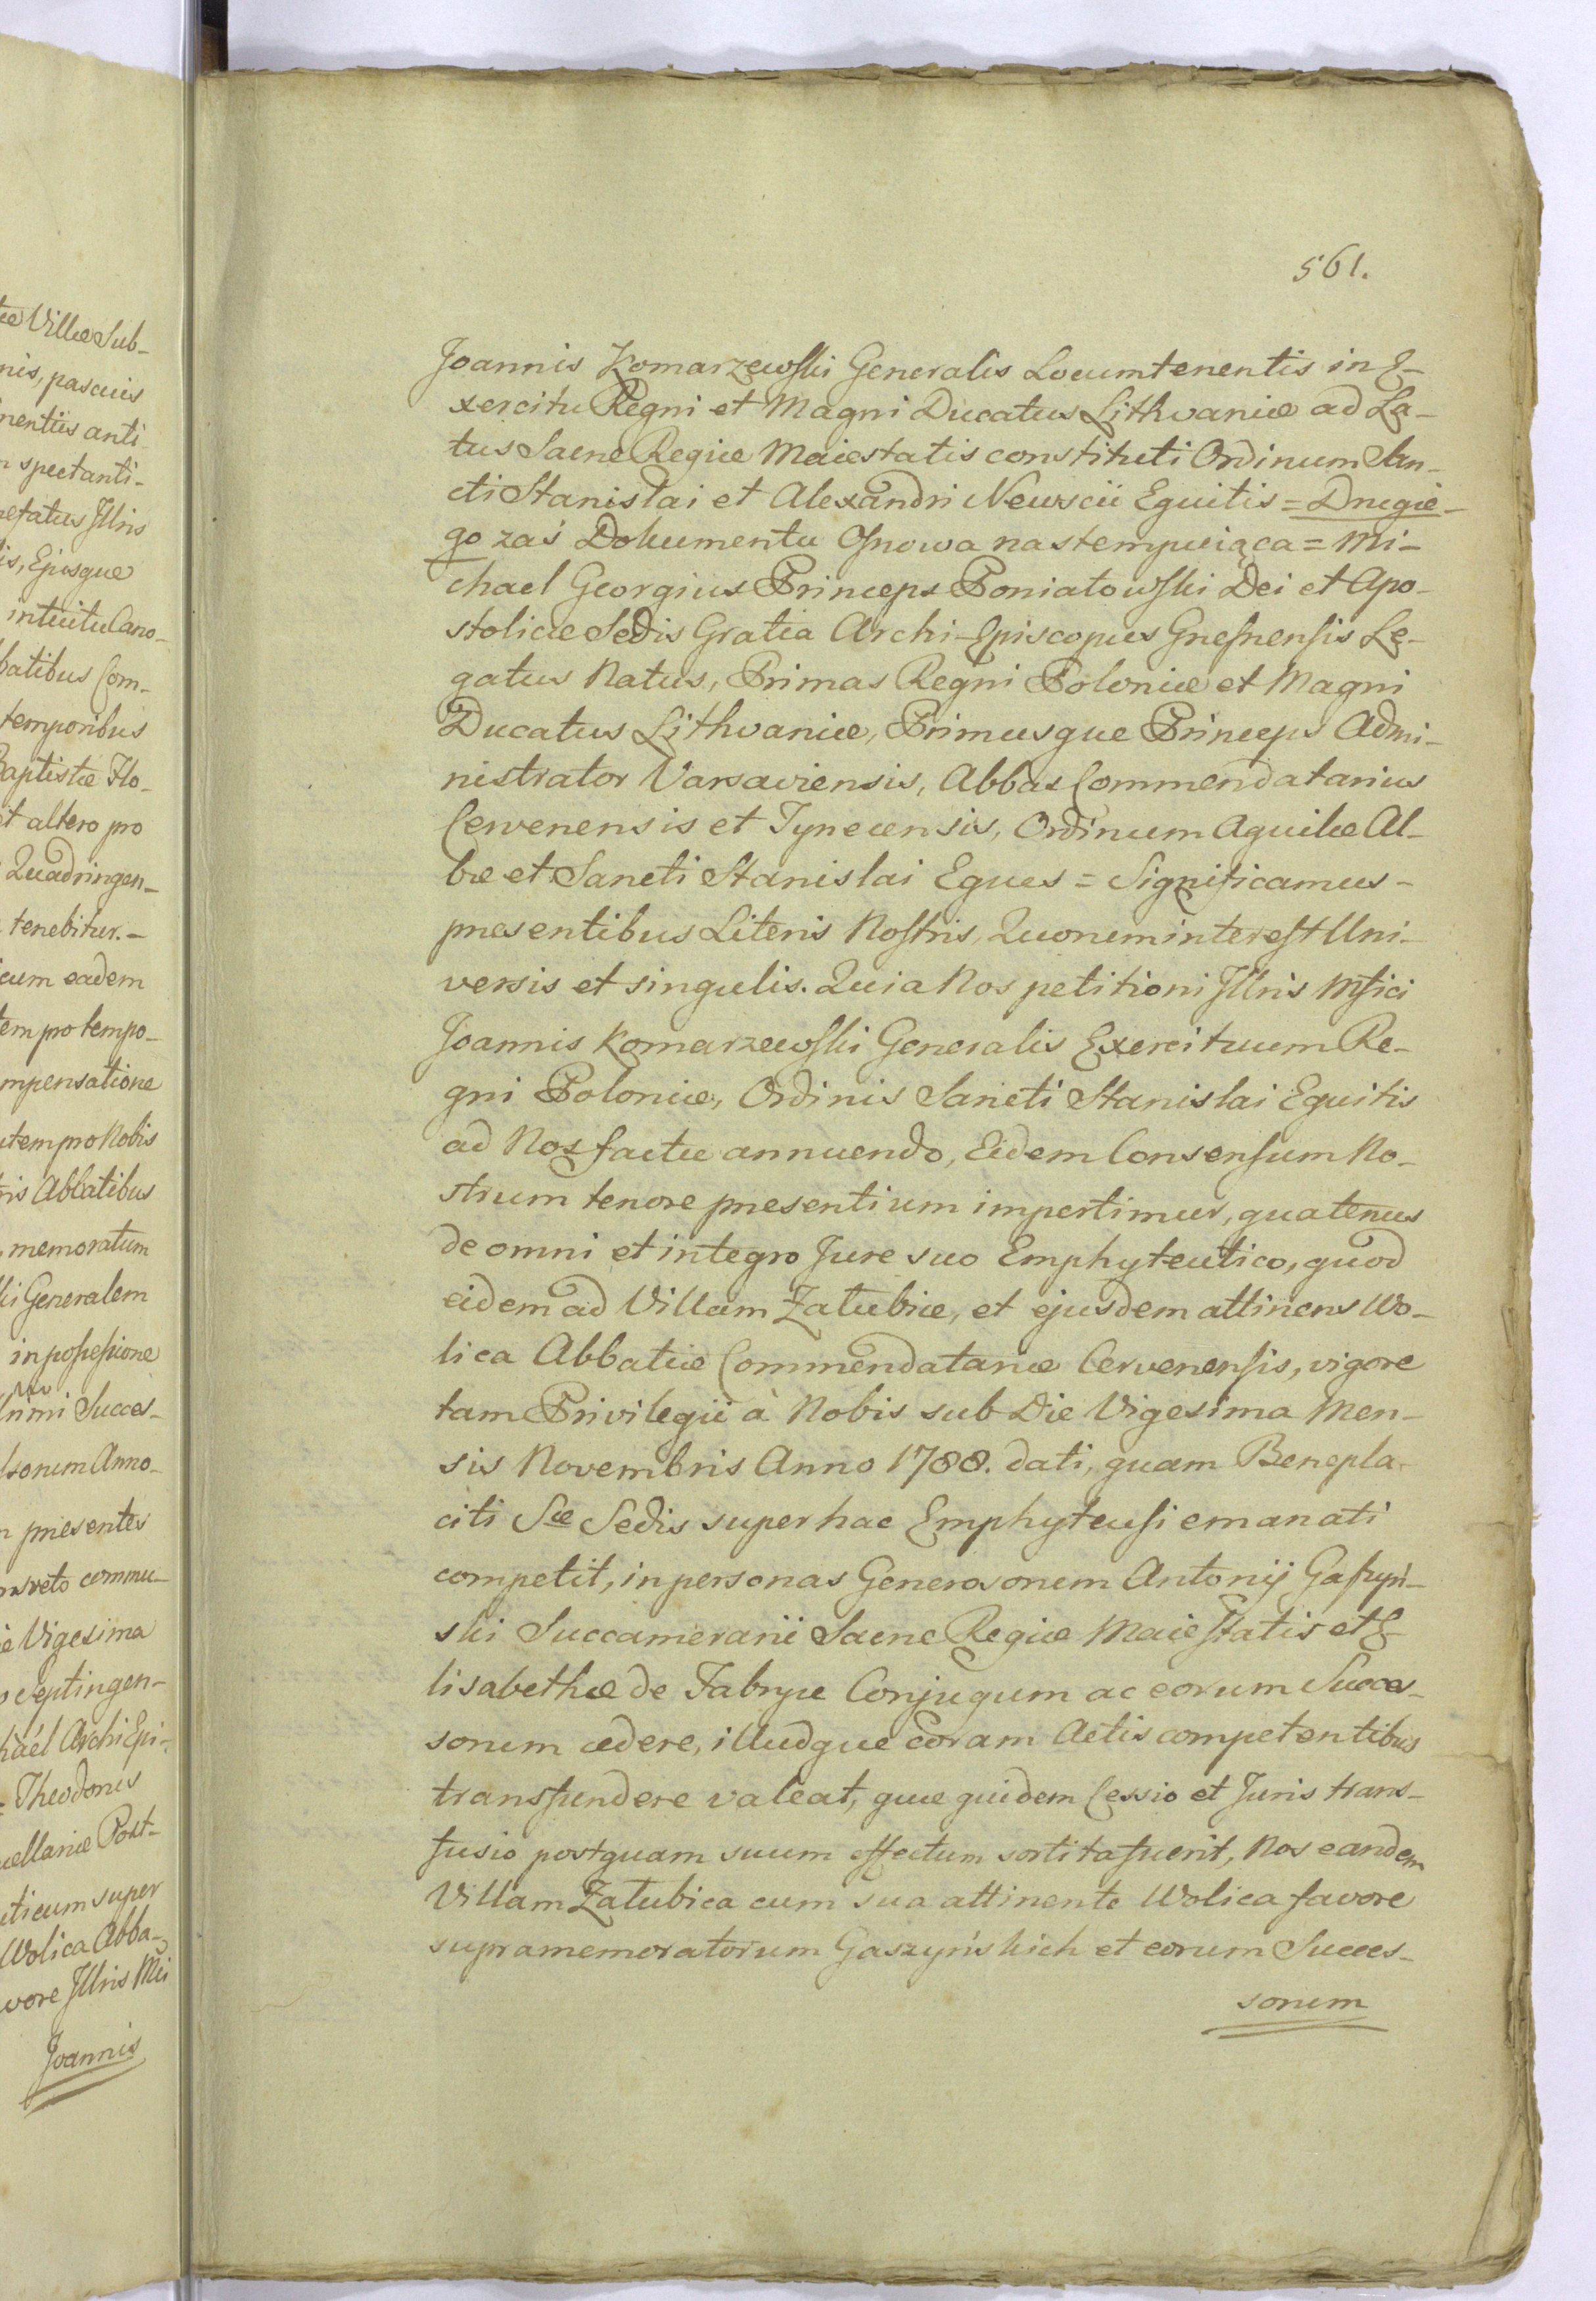 te Villæ Sub-
nis, pascuis
nentiis anti-
spectanti-
refatus Jllris
is, Ejusque
intuitu Cano-
batibus Com-
temporibus
Baptistæ Ho-
it altero pro
Quadringen-
tenebitur.-
cum eadem
tem pro tempo-
mpensatione
utem pro Nobis
ris Abbatibus
memoratum
ki Generalem
in possessione
nimi Succes-
sorum Anno-
presentes
vigesima
Septingen-
haél Archi Epi-
= Theodorus
cellariæ Post-
uticum super
Wolica Abba-
vore Jllris Mci
Joannis
561.
Joannis Komarzewski Generalis Locumtenentis in E-
xercitu Regni et Magni Ducatus Lithvaniæ ad La-
tus Sacræ Regiæ Maiestatis constituti Ordinum San-
cti Stanislai et Alexandri Newscii Equitis = Drugie-
go zaś Dokumentu Osnowa nastempuiąca = Mi-
chael Georgius Princeps Poniatowski Dei et Apo-
stolicæ Sedis Gratia Archi-Episcopus Gnesnensis Le-
gatus Natus, Primas Regni Poloniæ et Magni
Ducatus Lithvaniæ, Primusque Princeps Admi-
nistrator Varsaviensis, Abbas Commendatarius
Cervenensis et Tynecensis, Ordinum Aquilæ Al-
bæ et Sancti Stanislai Eques = Significamus-
presentibus Literis Nostris, Quorum interest Uni-
versis et singulis. Quia Nos petitioni Jllris Mfici
Joannis Komarzewski Generalis Exercituum Re-
gni Poloniæ, Ordinis Sancti Stanislai Equitis
ad Nos factæ annuendo, Eidem Consensum No-
strum tenore presentium impertimur, quatenus
de omni et integro Jure suo Emphyteutico, quod
eidem ad Villam Załubice, et ejusdem attinens Wo-
lica Abbatiæ Commendatariæ Cervenensis, vigore
tam Privilegii à Nobis sub Die Vigesima Men-
sis Novembris Anno 1788. dati, quam Benepla-
citi Sæ Sedis super hac Emphyteusi emanati
competit, in personas Generosorum Antonij Gaszyń-
ski Succamerarii Sacræ Regiæ Maiestatis et E-
lisabethæ de Fabryce Conjugum ac eorum Succes-
sorum cedere, illudque coram Actis competentibus
transfundere valeat, quæ quidem Cessio et Juris trans-
fusio postquam suum effectum sortita fuerit, Nos eandem
Villam Załubica cum sua attinente Wolica favore
supramemoratorum Gaszyńskich et eorum Succes-
sorum